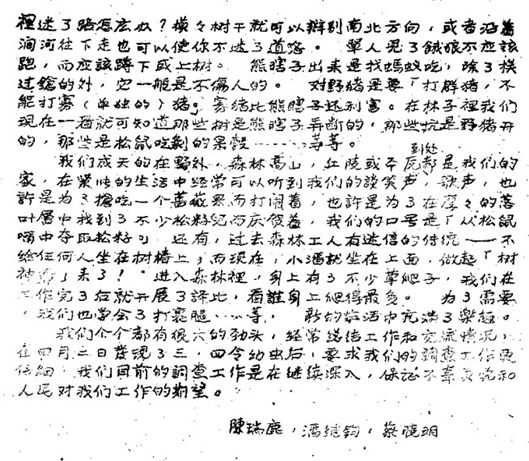 裡迷了路怎么办？摸々树干就可以辨别南北方向，或者沿着
涧河往下走也可以使你不迷了道路。單人見了餓狼不应該
跑，而应該蹲下或上树。熊瞎子出来是找螞蚁吃，除了模
过鎗的外，它一般是不傷人的。对野猪是要「打群猪，不
能打寡(单独的)猪」寡猪比熊瞎子还利害。在林子裡我们
現在一看就可知道那些树是熊瞎子弄断的，那些坑是野猪弄
的，那些是松鼠吃剩的果殼……等等。
我们成天的在野外，森林高山，丘陵或平原到处都是我们的
家，在緊张的生活中经常可以听到我们的談笑声，歌声，也
許是为了搶吃一个薔薇果而打闹着，也許是为了在厚々的落
叶層中找到了不少松籽纪而庆贺着，我们的口号是「从松鼠
嘴中夺取松籽。」还有，过去森林工人有迷信的传统——不
给任何人坐在树樁上，而現在，小潘就坐在上面，做起「树
神爷」来了！進入森林裡，身上有了不少草爬子，我们在
工作完了后就开展了評比，看誰身上爬得最多。为了需要
，我们也学会了打裹腿……等，新的生活中充满了樂趣。
我们个个都有很大的劲头，经常总结工作和交流情况，
在四月二日发現了三，四令幼虫后，要求我们的調查工作更
仔细，我们目前的調查工作是在继续深入，保証不辜负党和
人民对我们工作的期望。
陳瑞鹿，潘继鈞，蔡晓明